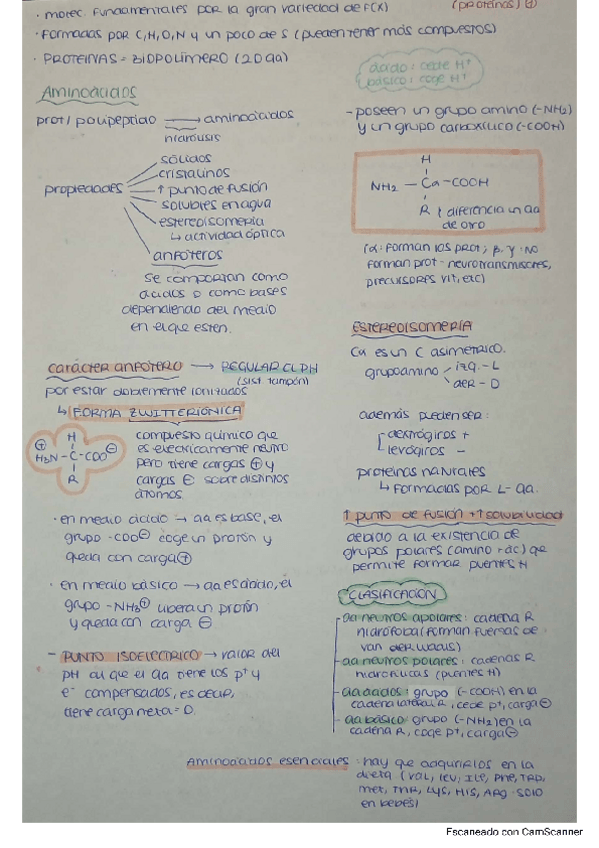 · molec. fundamentales por la gran variedad de f(x) (proteínas) ⊕
· formadas por C, H, O, N y un poco de S (pueden tener más compuestos)
· PROTEÍNAS = BIOPOLÍMERO (20 aa)
ácido: cede H⁺
básico: coge H⁺
Aminoácidos
prot / polipéptido → aminoácidos
hidrólisis
propiedades
sólidos
cristalinos
↑ punto de fusión
solubles en agua
estereoisomería
↳ actividad óptica
anfóteros
se comportan como
ácidos o como bases
dependiendo del medio
en el que estén.
- poseen un grupo amino (-NH₂)
y un grupo carboxílico (-COOH)
H
NH₂ – Cα – COOH
R ↑ diferencia un aa
de otro
(α: forman las prot; β, γ · NO
forman prot - neurotransmisores,
precursores vit, etc)
carácter anfótero → REGULAR EL PH
(sist. tampón)
por estar doblemente ionizados
↳ FORMA ZWITTERIÓNICA
⊕ H ⊖
H₃N – C – COO
R
compuesto químico que
es eléctricamente neutro
pero tiene cargas ⊕ y
cargas ⊖ sobre distintos
átomos.
· en medio ácido → aa es base, el
grupo -COO⊖ coge un protón y
queda con carga ⊕
· en medio básico → aa es ácido, el
grupo -NH₃⊕ libera un protón
y queda con carga ⊖
- PUNTO ISOELÉCTRICO → valor del
pH al que el aa tiene los p⁺ y
e⁻ compensados, es decir,
tiene carga neta = 0.
ESTEREOISOMERÍA
Cα es un C asimétrico.
grupo amino
izq. - L
der - D
además pueden ser:
dextrógiros +
levógiros -
proteínas naturales
↳ Formadas por L- aa.
↑ PUNTO DE FUSIÓN + ↑ solubilidad
debido a la existencia de
grupos polares (amino + ác) que
permite formar puentes H
CLASIFICACIÓN
- aa neutros apolares: cadena R
hidrófoba (forman fuerzas de
van der Waals)
- aa neutros polares: cadenas R
hidrofílicas (puentes H)
- aa ácidos: grupo (-COOH) en la
cadena lateral R, cede p⁺, carga ⊖
- aa básico: grupo (-NH₂) en la
cadena R, coge p⁺, carga ⊖
Aminoácidos esenciales: hay que adquirirlos en la
dieta (val, leu, ILE, Phe, TRP,
met, THR, LYS, HIS, ARG · solo
en bebés)
Escaneado con CamScanner